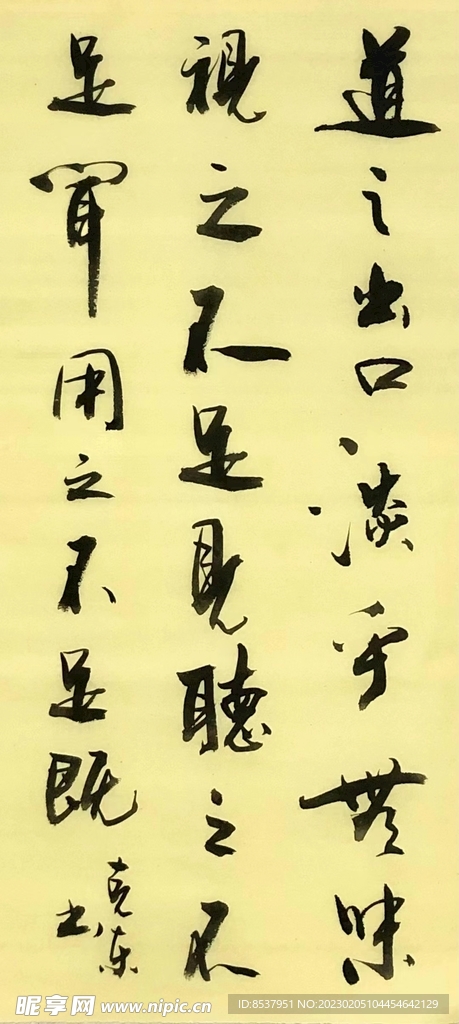 道之出口淡乎無味
視之不足見聽之不
足聞用之不足既
克東
书
昵享网 www.nipic.cn
ID:8537951 NO:20230205104454642129